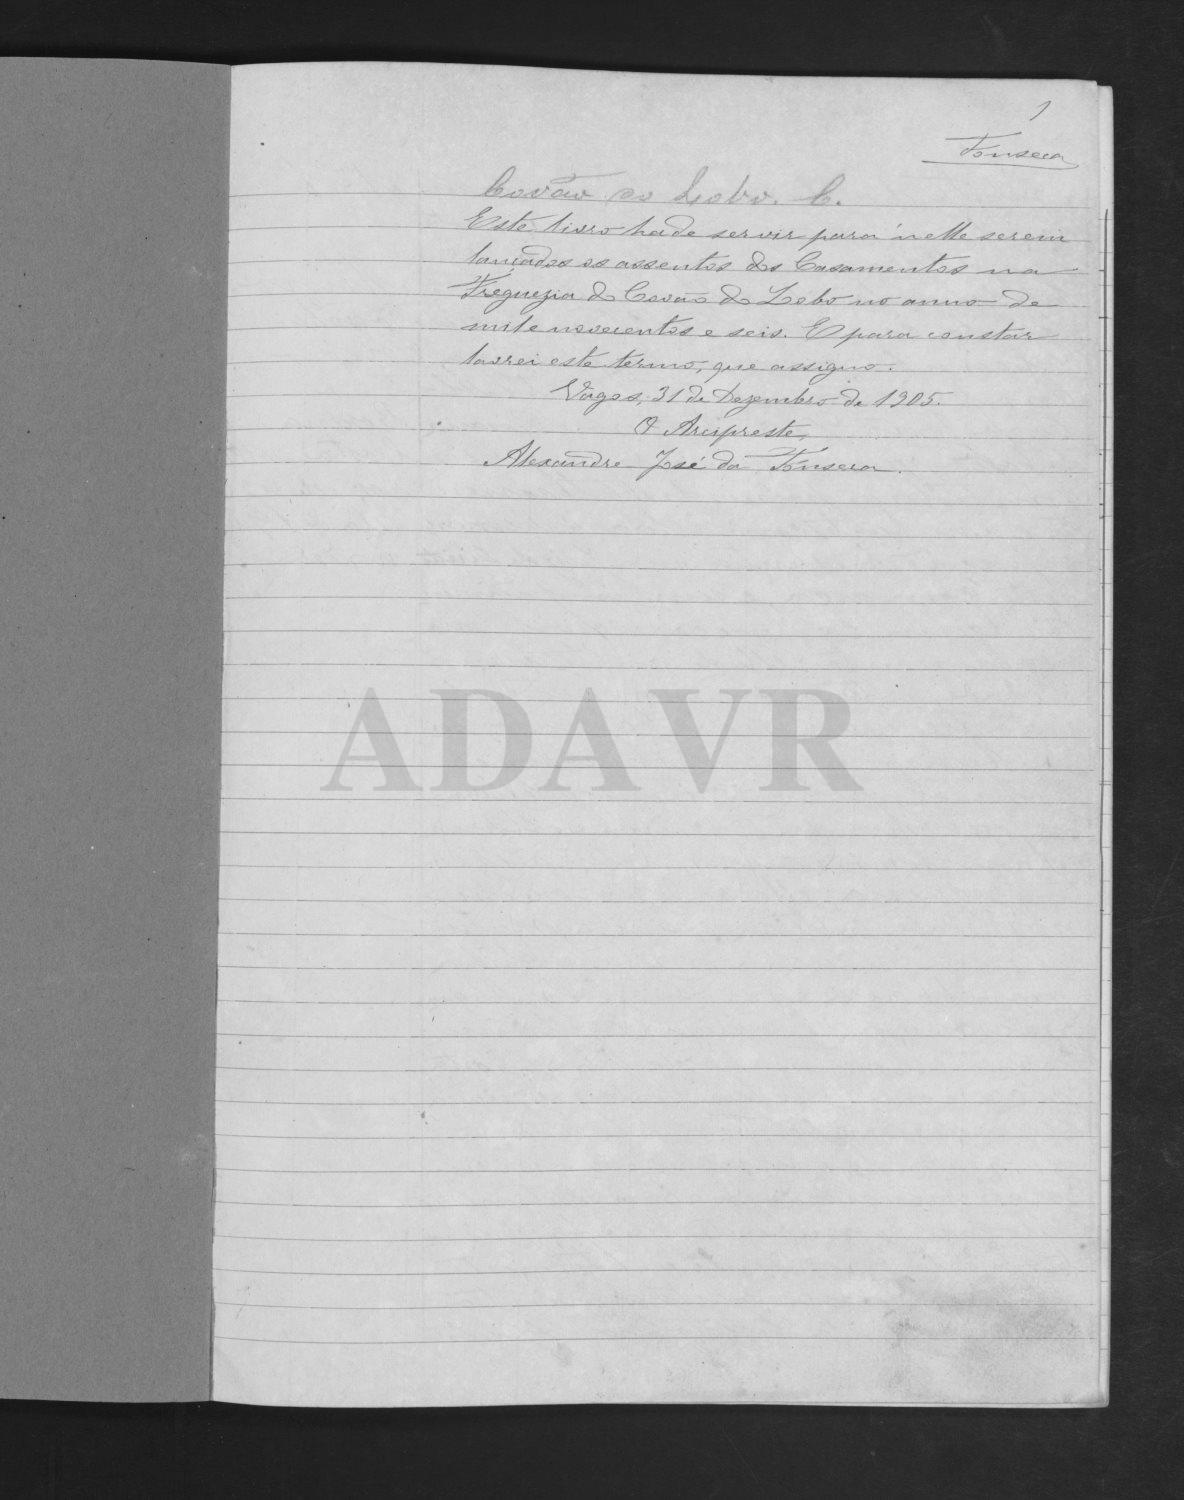 1
Fonseca
Covão do Lobo. C.
Este livro hade servir para n'elle serem
lançados os assentos dos Casamentos na
Freguezia do Covão do Lobo no anno de
mil e novecentos e seis. E para constar
lavrei este termo, que assigno.
Vagos, 31 de Dezembro de 1905.
O Arcipreste,
Alexandre José da Fonseca.
ADAVR